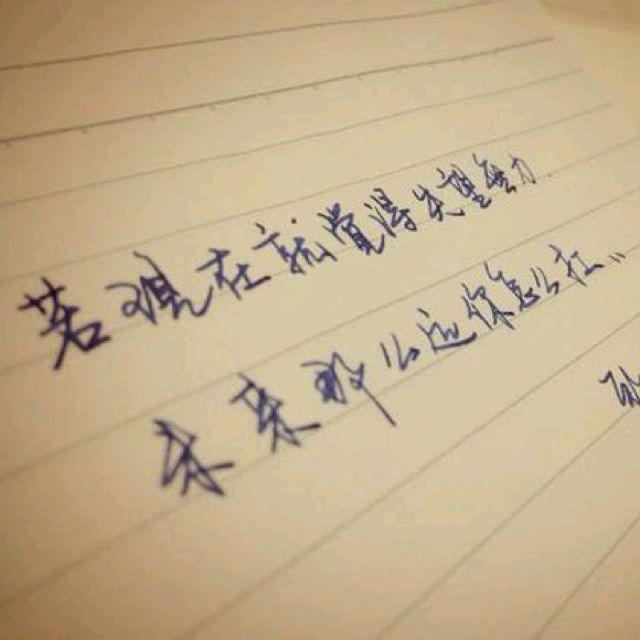 若现在就觉得失望无力.
未来那么远你怎么扛..